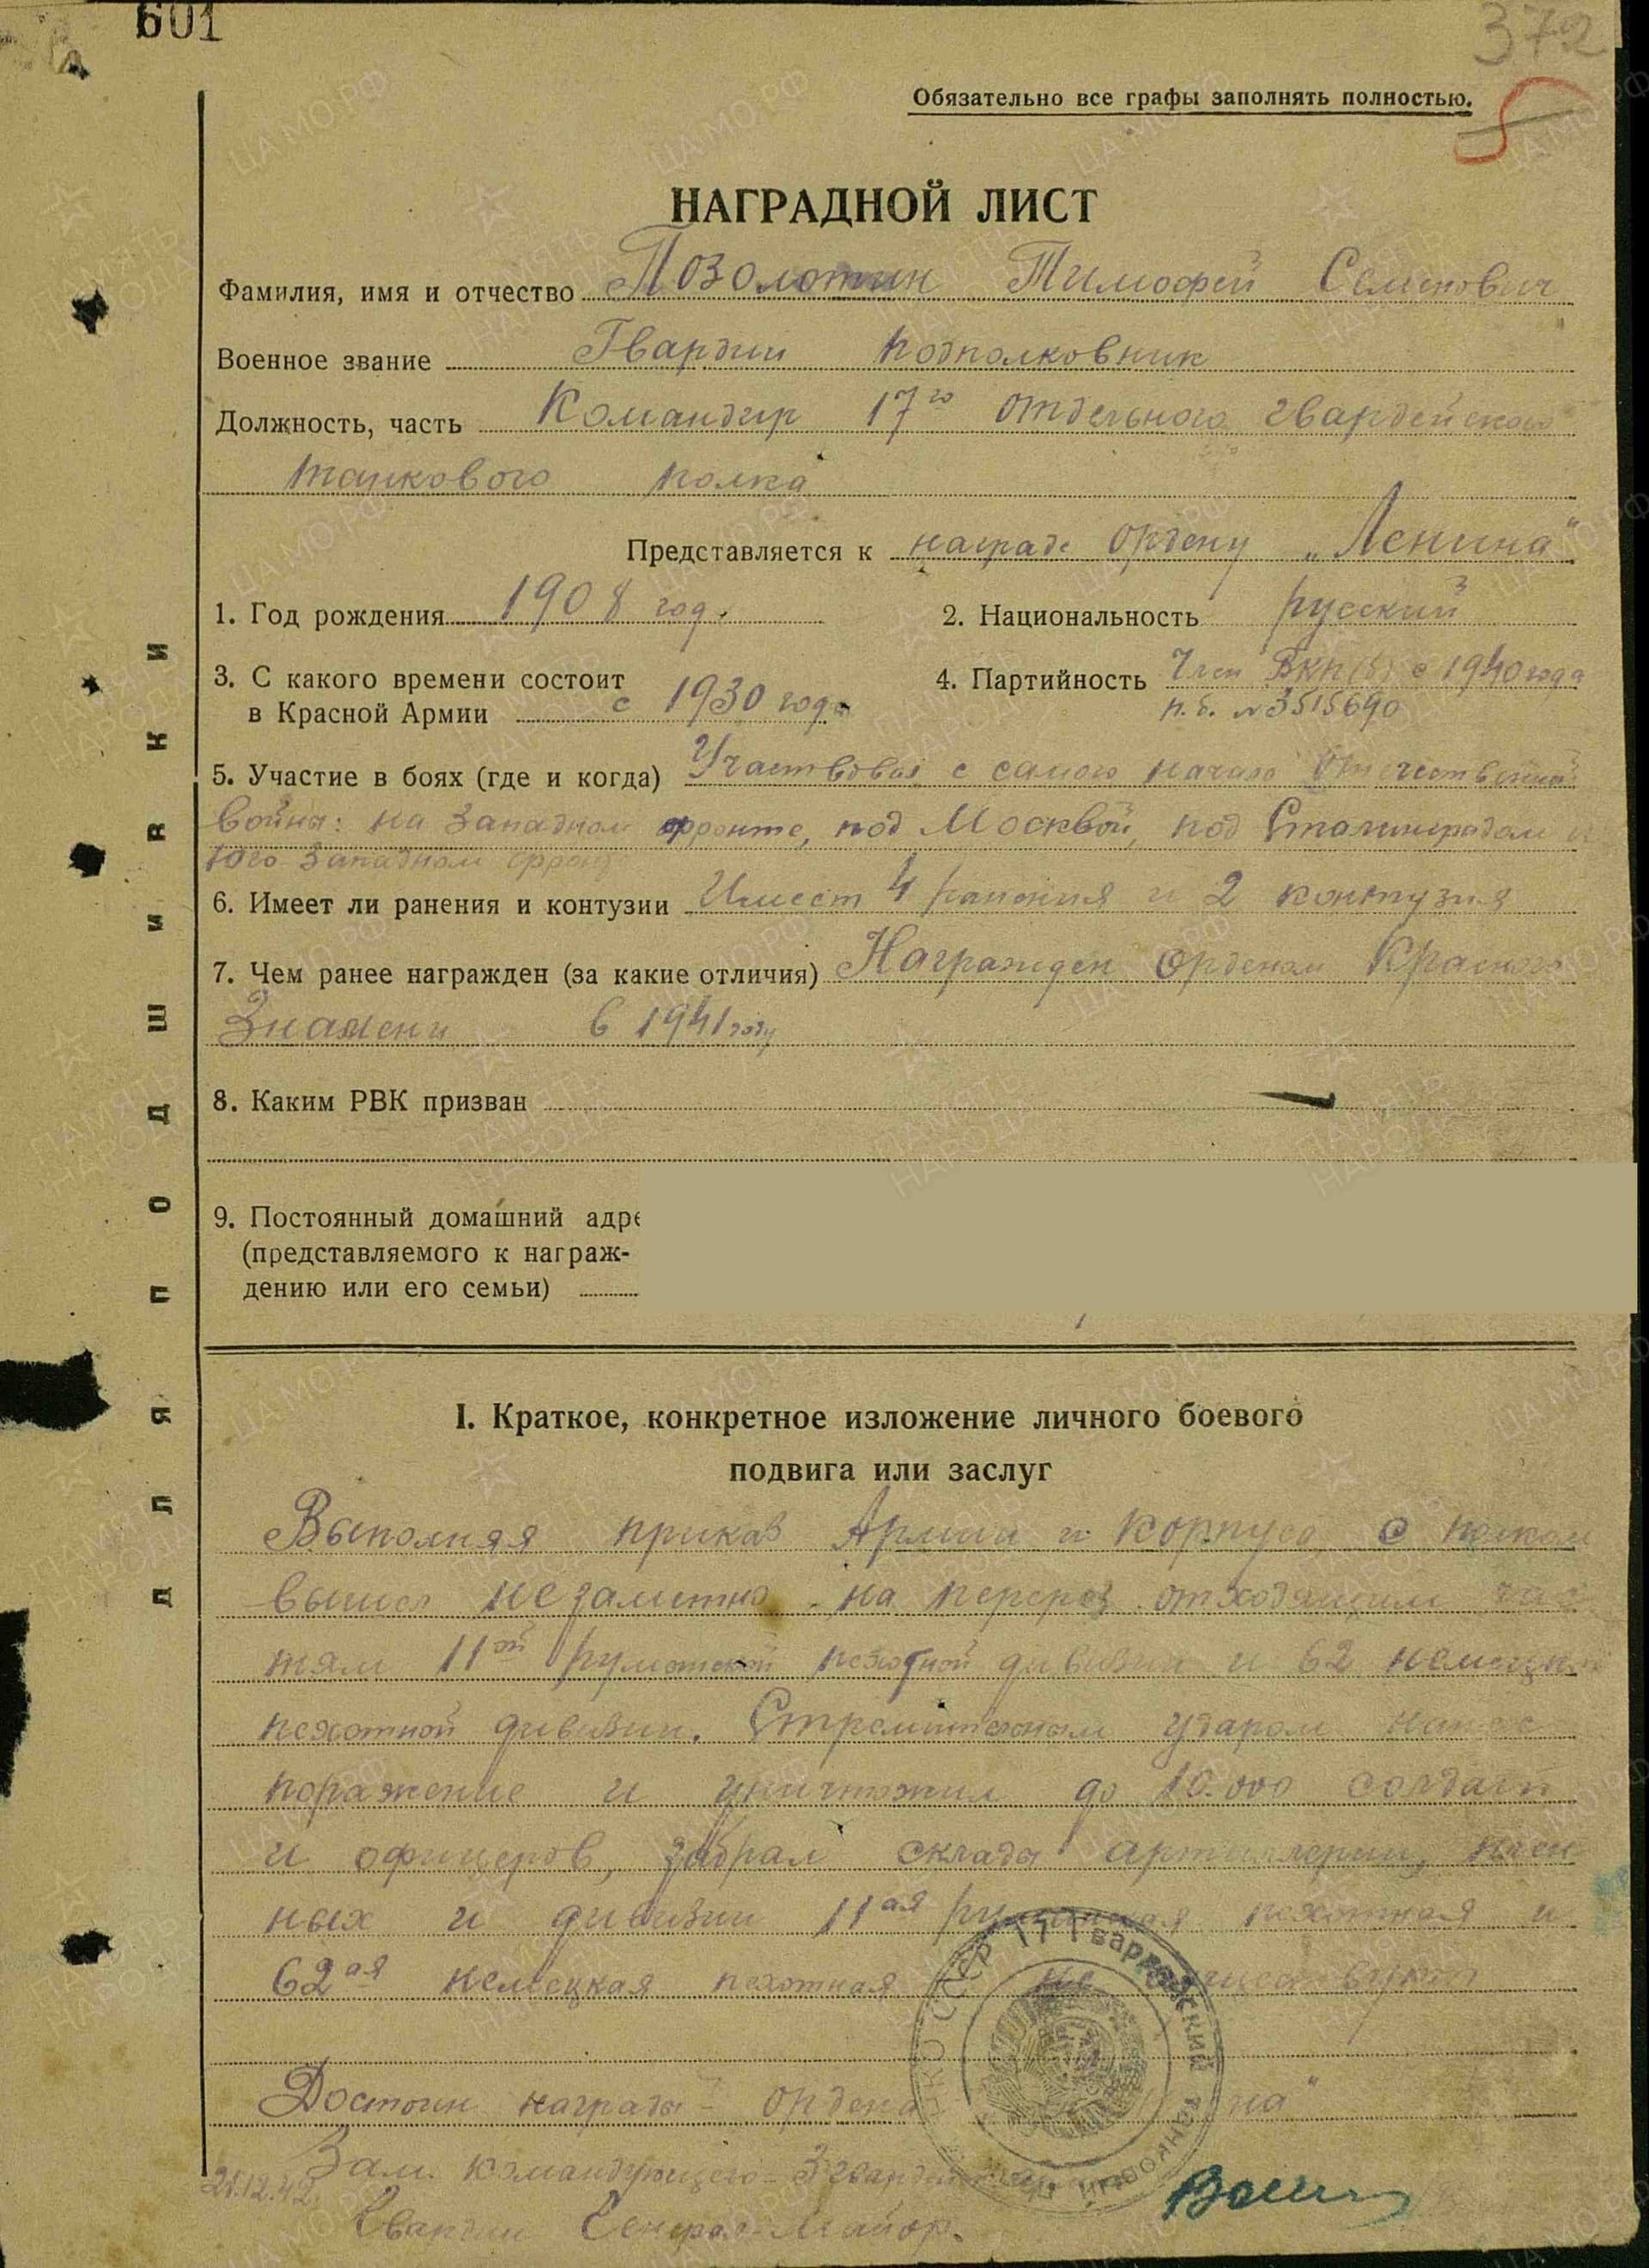 601
372
Обязательно все графы заполнять полностью.
НАГРАДНОЙ ЛИСТ
Фамилия, имя и отчество Позолотин Тимофей Семенович
Военное звание Гвардии подполковник
Должность, часть Командир 17го отдельного гвардейского
танкового полка
Представляется к награде ордену „Ленина"
1. Год рождения 1908 год.
2. Национальность русский
3. С какого времени состоит
в Красной Армии с 1930 года
4. Партийность Член ВКП(б) с 1940 года
п.б. № 3515690
5. Участие в боях (где и когда) Участвовал с самого начала Отечественной
война: на Западном фронте, под Москвой, под Сталинградом и
Юго-Западном фронте
6. Имеет ли ранения и контузии Имеет 4 ранения и 2 контузия
7. Чем ранее награжден (за какие отличия) Награжден орденом Красного
Знамени в 1941 году
8. Каким РВК призван
9. Постоянный домашний адре
(представляемого к награж-
дению или его семьи)
I. Краткое, конкретное изложение личного боевого
подвига или заслуг
Выполняя приказ Армии и корпуса, с полком
вышел незаметно на перерез отходящим час
тям 11ой румынской пехотной дивизии и 62 немецкой
пехотной дивизии. Стремительным ударом нанес
поражение и уничтожил до 10.000 солдат
и офицеров, забрал склады артиллерии, плен
ных и дивизии 11ая румынская пехотная и
62ая немецкая пехотная не существуют
Достоин награды - ордена
Зам. командующего 3 гвардейской
25.12.42
Гвардии Генерал-Майор.
для подшивки